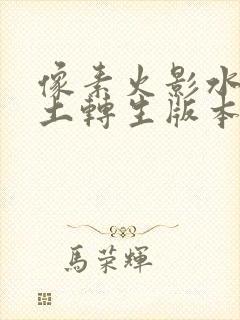 像素火影水
土轉生版本
馬榮輝